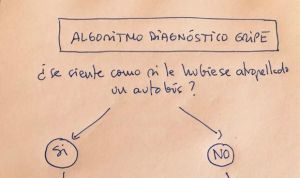 ALGORITMO DIAGNÓSTICO GRIPE
¿se siente como si le hubiese atropellado
un autobús?
Sí
NO